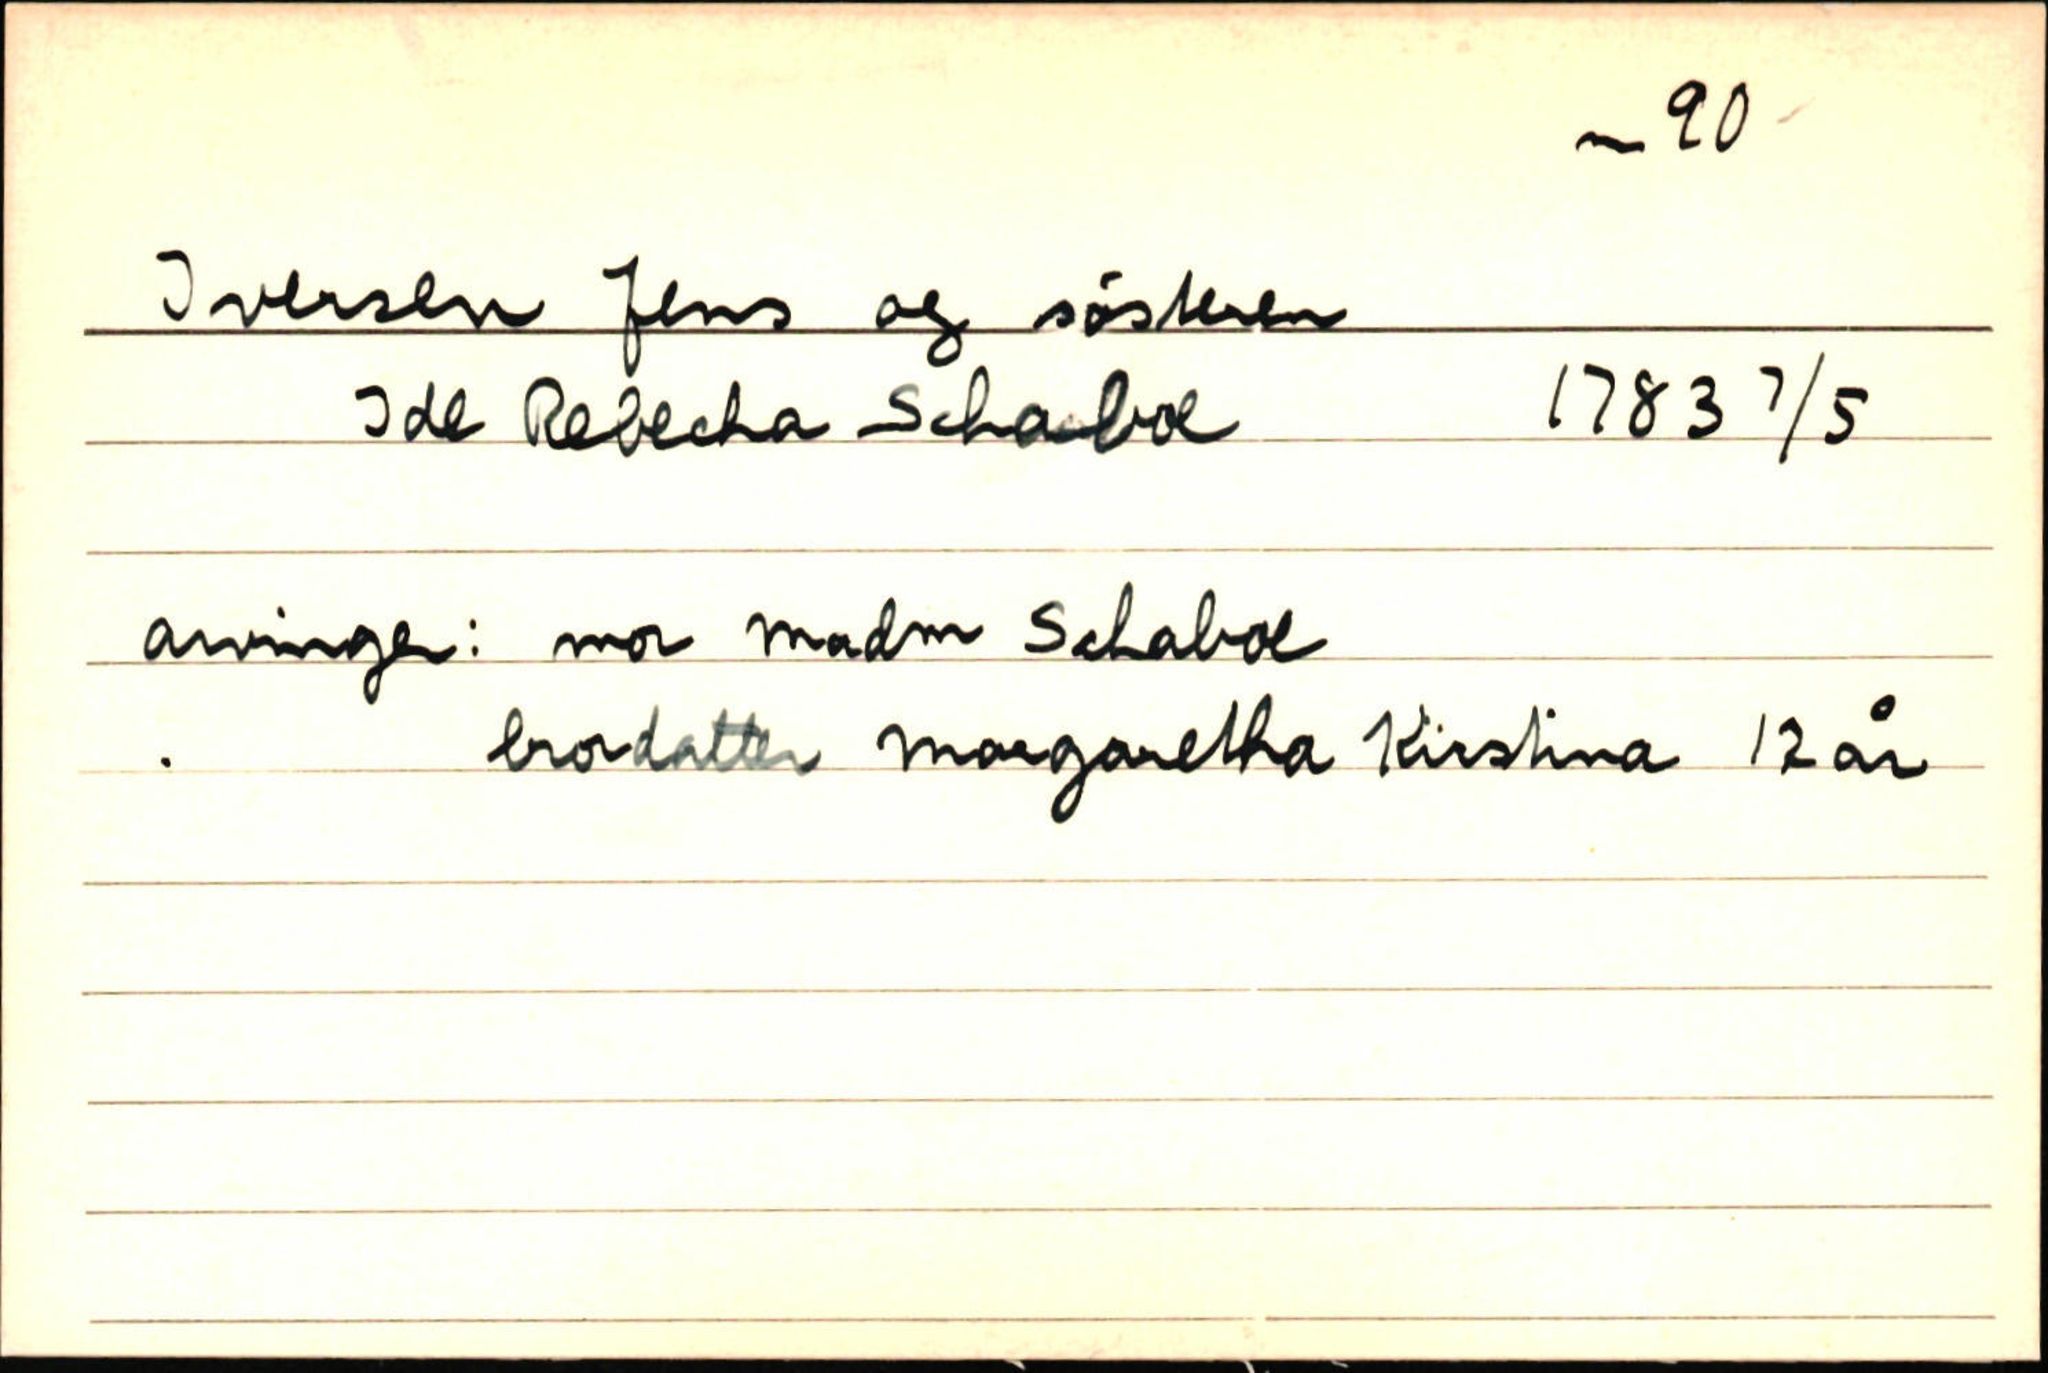 ~ 90
Iversen Jens og søsteren
Ide Rebecha Schaboe 1783 7/5
arvinger: mor Madm Schaboe
brordatter Margaretha Kirstina 12 år